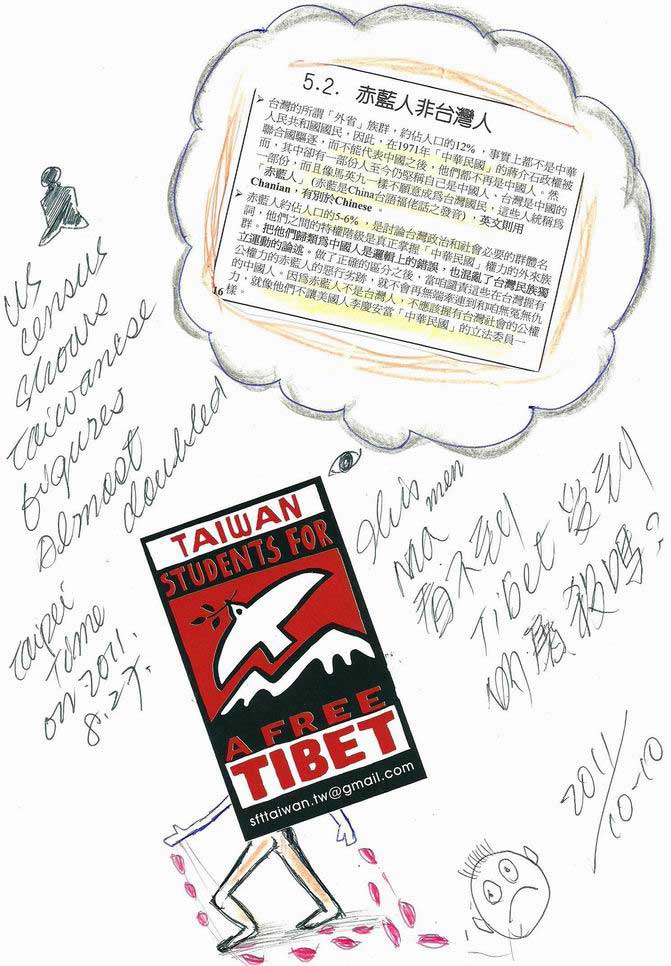 5.2. 赤藍人非台灣人
➢ 台灣的所謂「外省」族群，約佔人口的12%，事實上都不是中華
人民共和國國民，因此，在1971年「中華民國」的蔣介石政權被
聯合國驅逐，而不能代表中國之後，他們都不再是中國人。然
而，其中卻有一部份人至今仍堅稱自己是中國人、台灣是中國的
一部份，而且像馬英九一樣不願意成為台灣國民，這些人統稱為
「赤藍人」（赤藍是China台語福佬話之發音），英文則用
Chanian，有別於Chinese。
➢ 赤藍人約佔人口的5-6%，是討論台灣政治和社會必要的群體名
詞，他們之間的特權階級是真正掌握「中華民國」權力的外來族
群。把他們歸類為中國人是邏輯上的錯誤，也混亂了台灣民族獨
立運動的論述。做了正確的區分之後，當咱譴責這些在台灣握有
公權力的赤藍人的惡行劣跡，就不會再無端牽連到和咱無冤無仇
的中國人。因為赤藍人不是台灣人，不應該握有台灣社會的公權
力，就像他們不讓美國人李慶安當「中華民國」的立法委員一
16 樣。
US
census
shows
taiwanese
figures
almost
doubled
taipei
Time
on 2011.
8.27.
TAIWAN
STUDENTS FOR
A FREE
TIBET
sfttaiwan.tw@gmail.com
This man
Ma
看不到
Tibet 受到
的屠殺嗎？
2011/
10-10